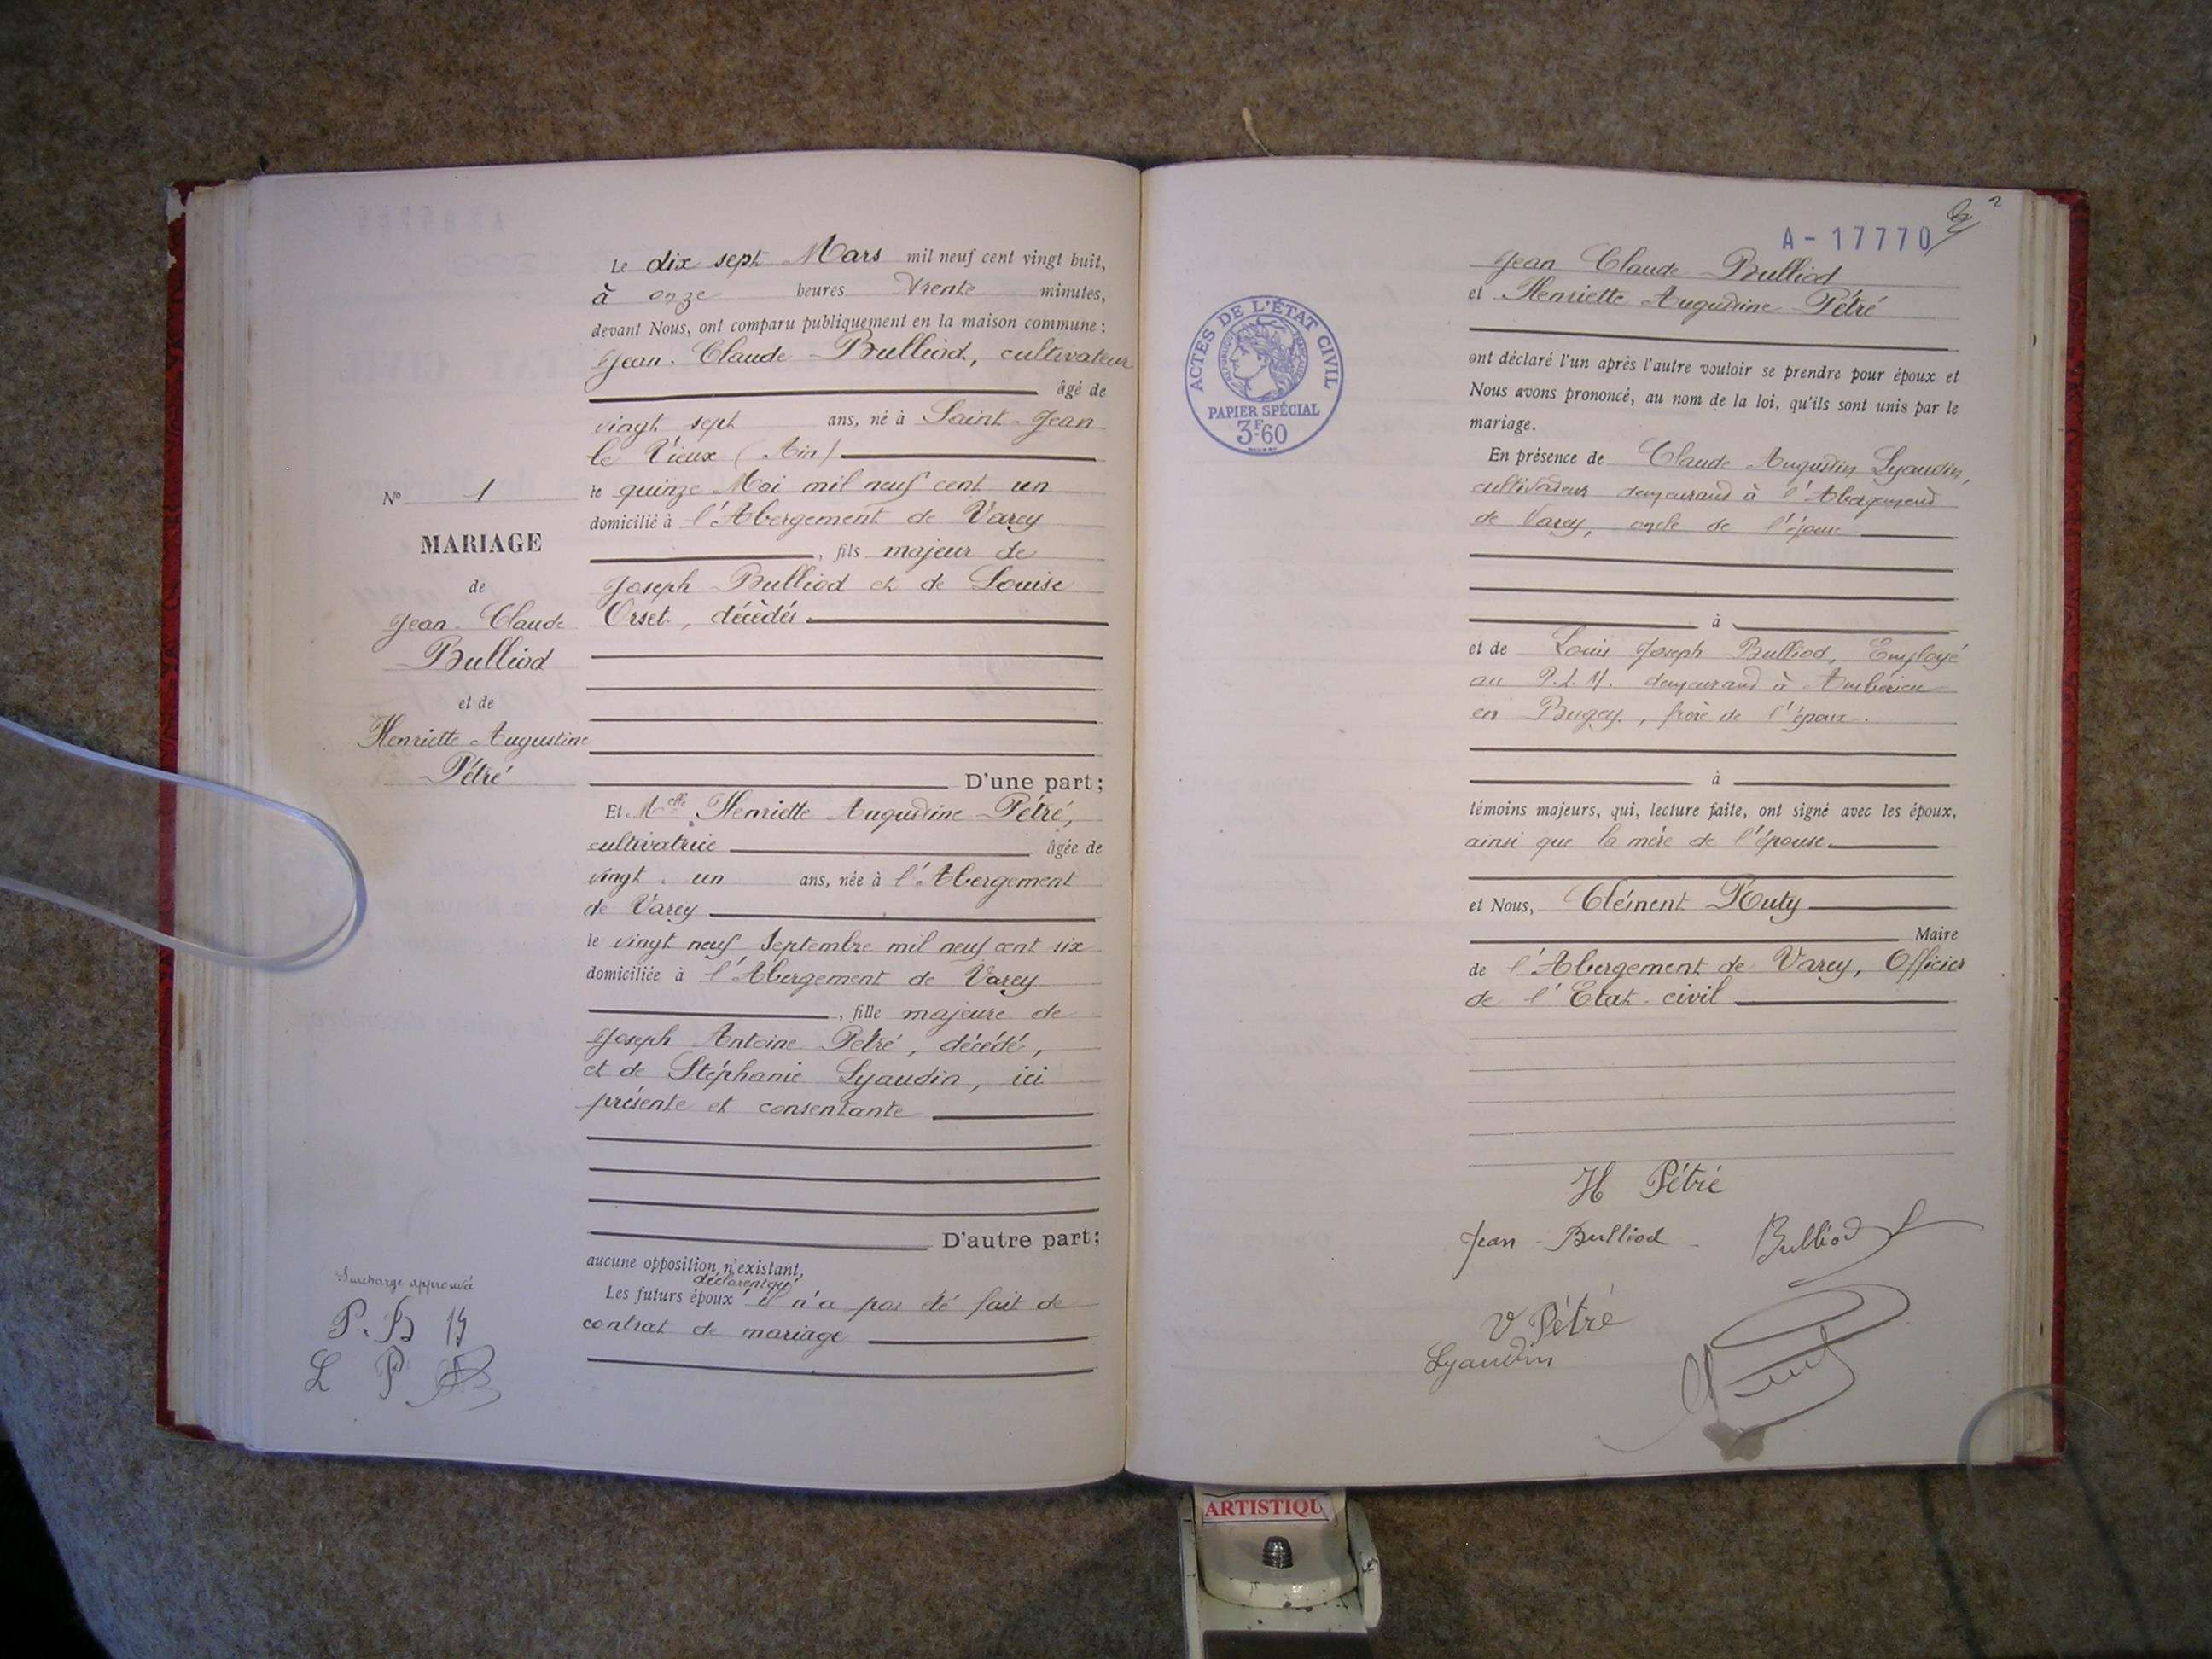 Le dix sept Mars mil neuf cent vingt huit,
à onze heures trente minutes,
devant Nous, ont comparu publiquement en la maison commune :
Jean-Claude Bulliod, cultivateur
âgé de
vingt sept ans, né à Saint-Jean
le Vieux (Ain)
le quinze Mai mil neuf cent un
domicilié à l'Abergement de Varey
, fils majeur de
Joseph Bulliod et de Louise
Orset, décédés
D'une part;
N° 1
MARIAGE
de
Jean-Claude
Bulliod
et de
Henriette Augustine
Pétré
Et Melle Henriette Augustine Pétré,
cultivatrice âgée de
vingt-un ans, née à l'Abergement
de Varey
le vingt neuf Septembre mil neuf cent six
domiciliée à l'Abergement de Varey
, fille majeure de
Joseph Antoine Pétré, décédé,
et de Stéphanie Lyaudin, ici
présente et consentante
D'autre part;
aucune opposition n'existant,
déclarent qu'
Les futurs époux il n'a pas été fait de
contrat de mariage
Surcharge approuvée
P. B
L P
A-17770
2
ACTES DE L'ÉTAT CIVIL
RÉPUBLIQUE FRANÇAISE
PAPIER SPÉCIAL
3F60
Jean Claude Bulliod
et Henriette Augustine Pétré
ont déclaré l'un après l'autre vouloir se prendre pour époux et
Nous avons prononcé, au nom de la loi, qu'ils sont unis par le
mariage.
En présence de Claude Augustin Lyaudin,
cultivateur demeurant à l'Abergement
de Varey, oncle de l'épouse
à
et de Louis Joseph Bulliod, Employé
au P.L.M. demeurant à Ambérieu
en Bugey, frère de l'époux.
à
témoins majeurs, qui, lecture faite, ont signé avec les époux,
ainsi que la mère de l'épouse.
et Nous, Clément Ruty
Maire
de l'Abergement de Varey, Officier
de l'Etat-civil
H Pétré
Jean Bulliod Bulliod L
V Pétré
Lyaudin
ARTISTIQU